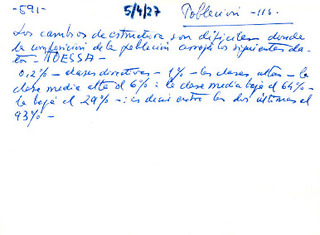 -591- 5/4/27 Población -115-
Los cambios de estructura son difíciles donde
la composición de la población arroja los siguientes da-
tos FOESSA-
0,2% - clases directivas - 1% - las clases altas - la
clase media alta el 6% : la clase media baja el 64% -
la baja el 29% - : es decir entre las dos últimas el
93% -